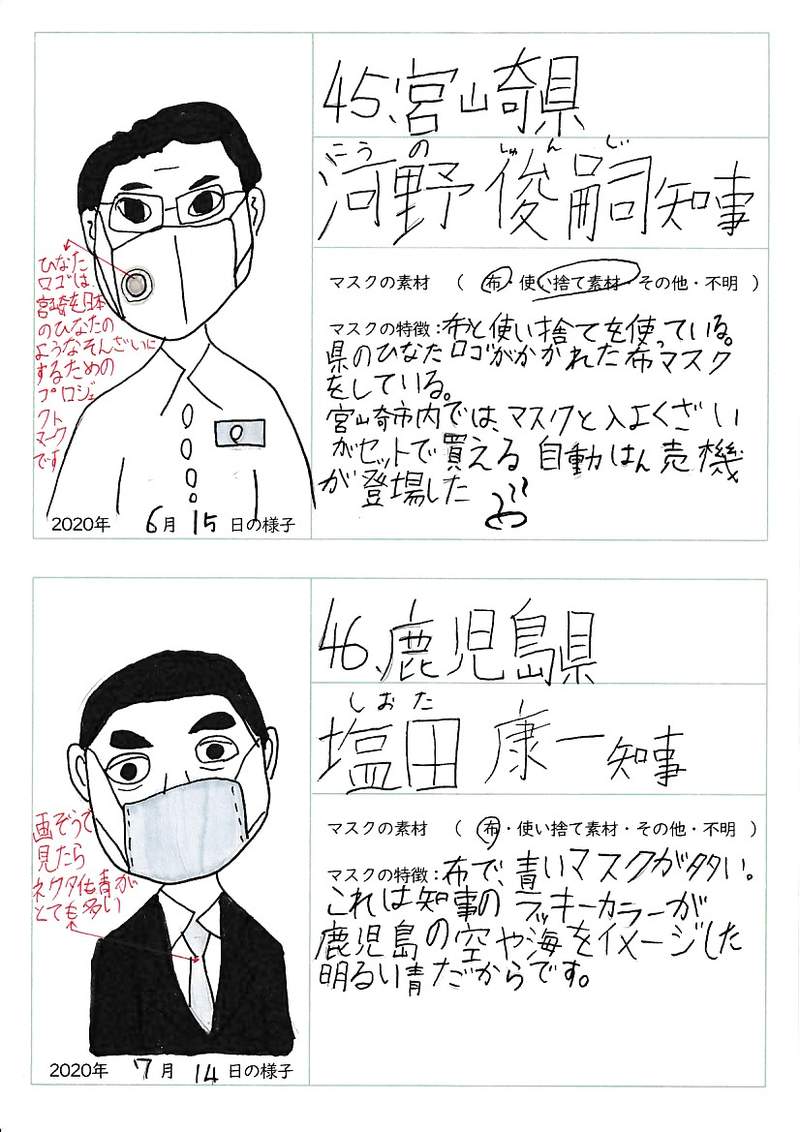 45.宮崎県
こうの しゅんじ
河野 俊嗣知事
マスクの素材 ( 布・使い捨て素材・その他・不明 )
マスクの特徴:布と使い捨てを使っている。
県のひなたロゴがかかれた布マスク
をしている。
宮崎市内では、マスクと入よくざい
がセットで買える 自動はん売機
が登場した
ひなた
ロゴは、
宮崎を日本
のひなたの
ようなそんざいに
するための
プロジェ
クト
マーク
です
2020年 6月 15 日の様子
46.鹿児島県
しおた
塩田 康一知事
マスクの素材 ( 布・使い捨て素材・その他・不明 )
マスクの特徴:布で、青いマスクが多い。
これは知事の ラッキーカラーが
鹿児島の空や海をイメージした
明るい青だからです。
画ぞうで
見たら
ネクタイも青が
とても多い
2020年 7月 14 日の様子